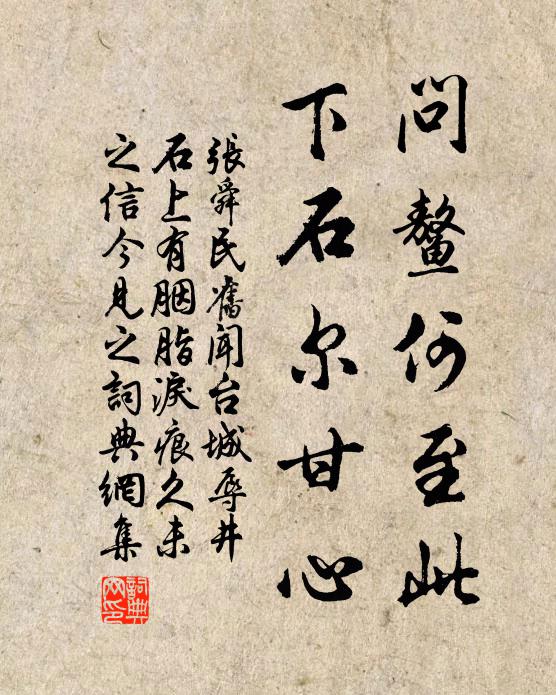 問鰲何至此
下石尔甘心
張舜民舊聞台城辱井
石上有胭脂淚痕久未
之信今見之詞典網集
詞典网印